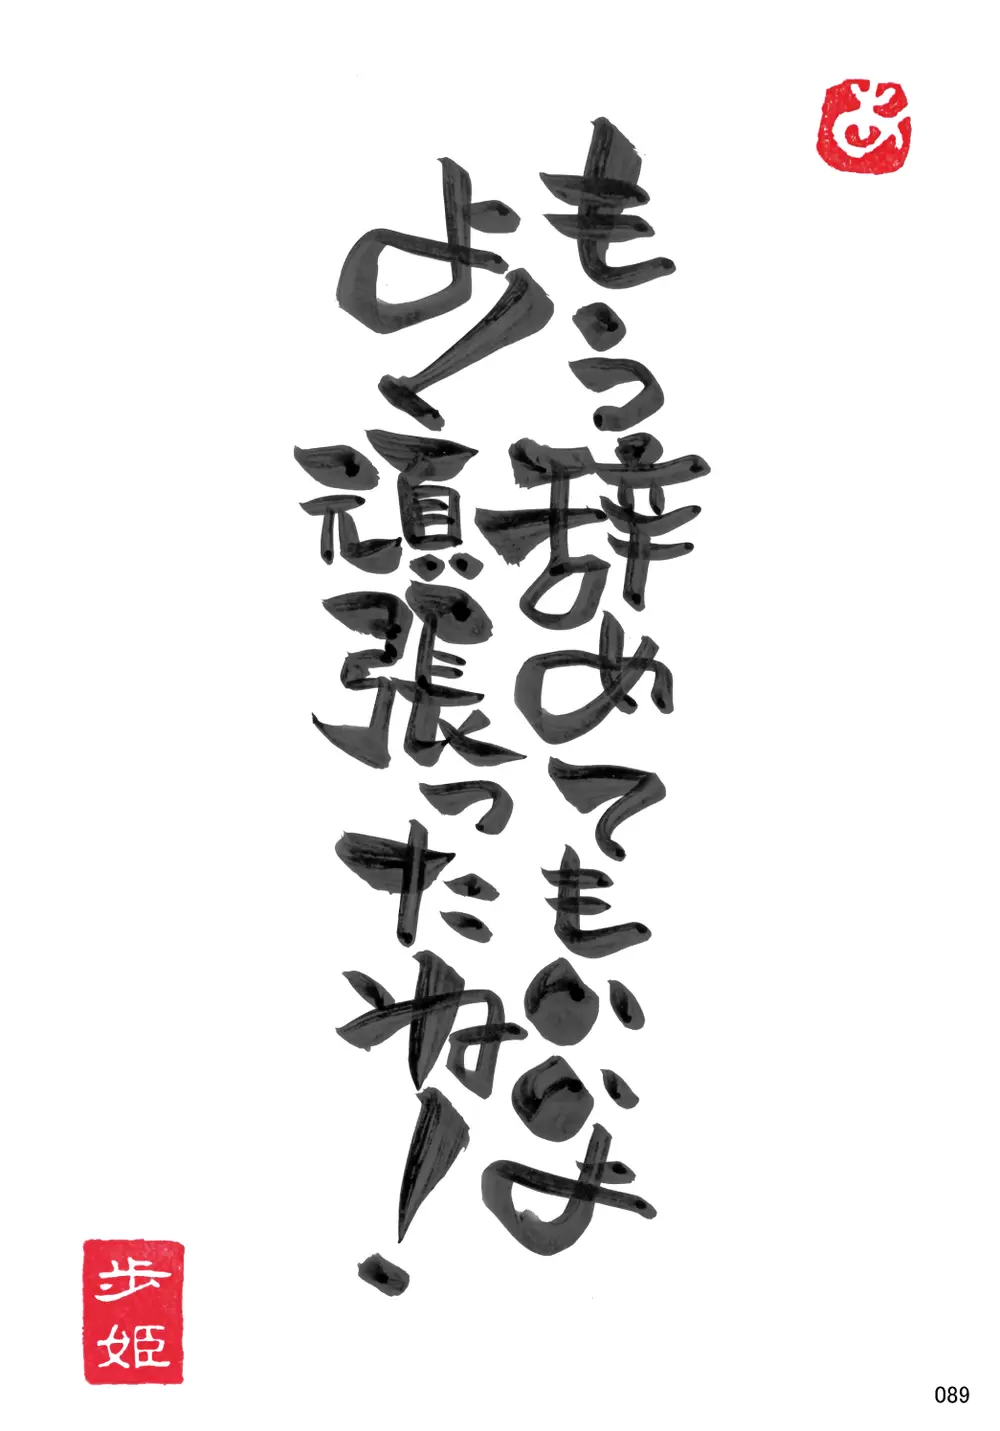 あ
もう辞めてもいいよ
よく頑張ったね!
歩姫
089